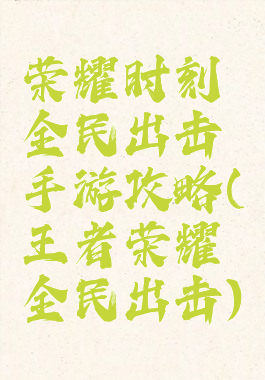 荣耀时刻
全民出击
手游攻略(
王者荣耀
全民出击)